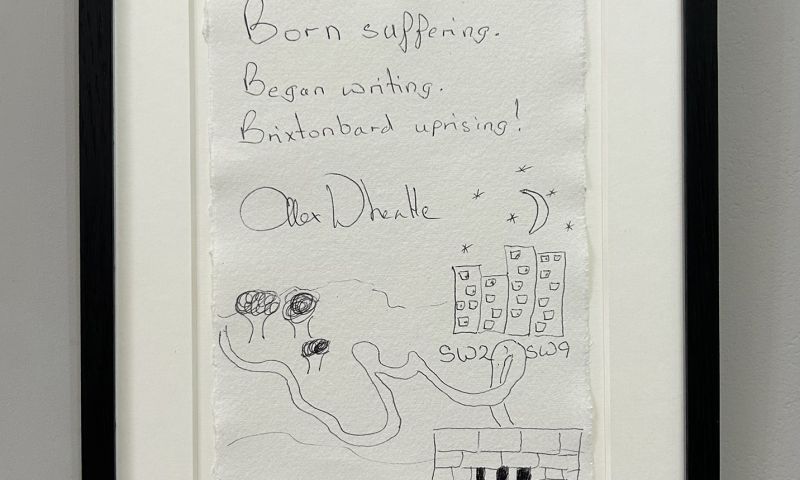 Born suffering.
Began writing.
Brixtonbard uprising!
Alex Wheatle
SW2 SW9